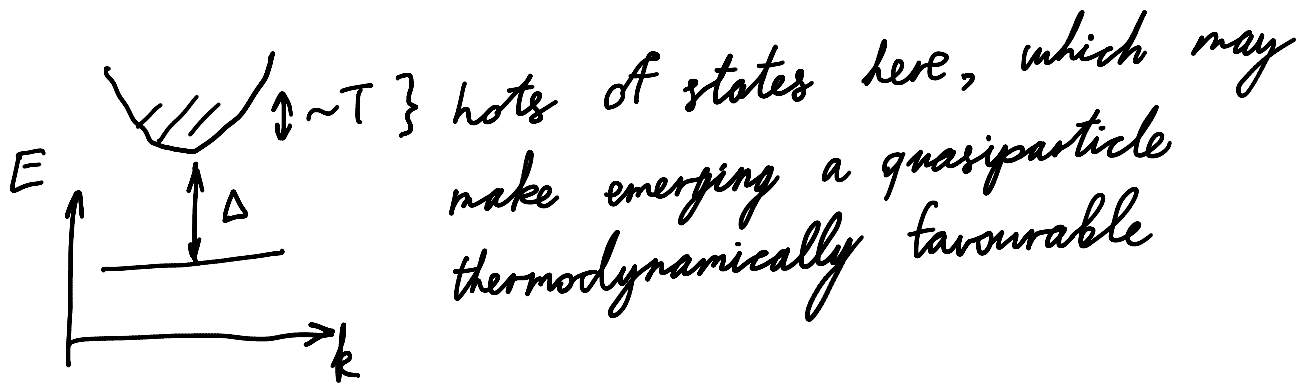 ~T } hots of states here, which may
make emerging a quasiparticle
thermodynamically favourable
E
Δ
k